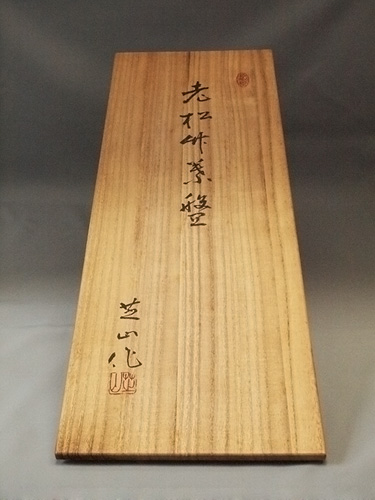 老松竹葉盤
芝山作